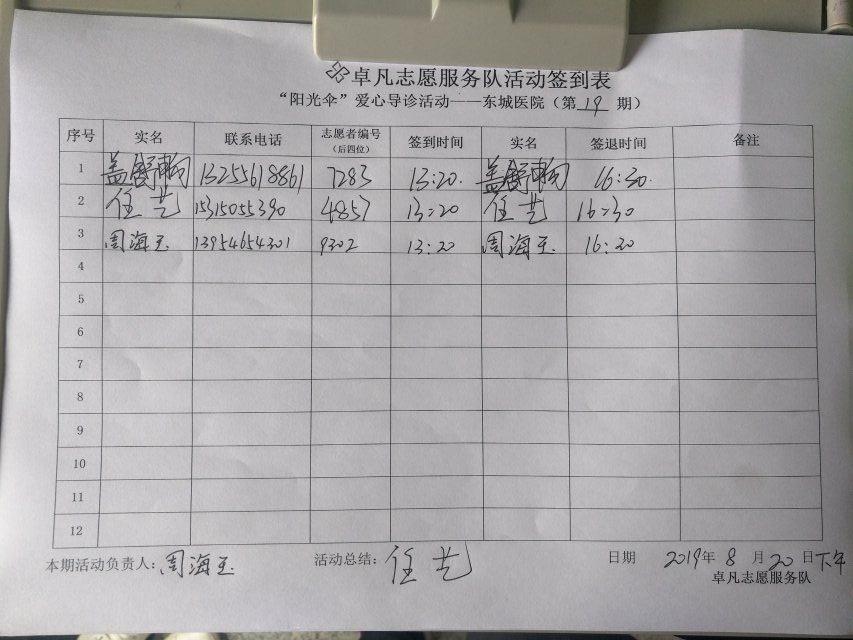 卓凡志愿服务队活动签到表
“阳光伞”爱心导诊活动——东城医院（第 19 期）
序号 实名 联系电话 志愿者编号（后四位） 签到时间 实名 签退时间 备注
1 盖 13255618861 7283 13:20. 盖 16:30.
2 任艺 15315055390 4857 13:20 任艺 16:30
3 周海玉 13954654301 9302 13:20 周海玉 16:20
4
5
6
7
8
9
10
11
12
本期活动负责人：周海玉 活动总结：任艺 日期 2019年 8 月 20 日下午
卓凡志愿服务队